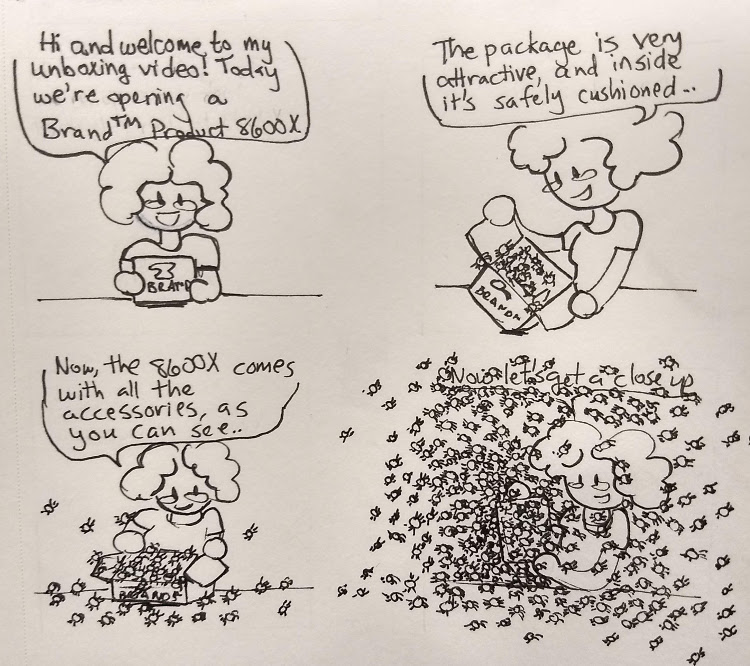 Hi and welcome to my
unboxing video! Today
we're opening a
Brand™ Product 8600X
BRAND
The package is very
attractive, and inside
it's safely cushioned...
BRANDA
Now, the 8600X comes
with all the
accessories, as
you can see..
BRANDS
Now let's get a close up